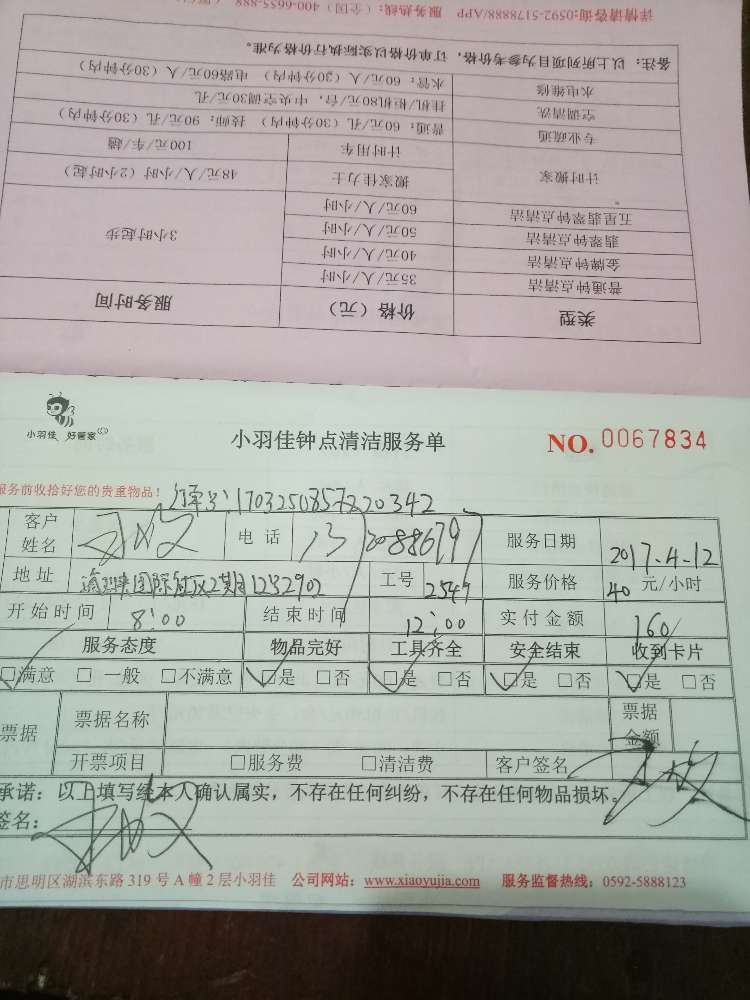 详情请咨询:0592-5178888/APP 服务热线:(全国)400-6655-888
备注:以上所列项目为参考价格,订单价格以实际执行价格为准。
水电维修 水管:60元/人(30分钟内) 电路60元/人(30分钟内)
空调清洗 挂机/柜机80元/台,中央空调30元/孔
专业疏通 普通:60元/孔(30分钟内) 技师:90元/孔(30分钟内)
计时搬家 计时用车 100元/车/趟
搬家佳力士 48元/人/小时(2小时起)
五星翡翠钟点清洁 60元/人/小时
翡翠钟点清洁 50元/人/小时 3小时起步
金牌钟点清洁 40元/人/小时
普通钟点清洁 35元/人/小时
类型 价格(元) 服务时间
小羽佳 好管家
小羽佳钟点清洁服务单 NO. 0067834
服务前收拾好您的贵重物品!
订单号:1703250857220342
客户姓名 电话 服务日期 2017-4-12
地址 工号 2547 服务价格 40元/小时
开始时间 8:00 结束时间 12:00 实付金额 160/
服务态度 物品完好 工具齐全 安全结束 收到卡片
□满意 □一般 □不满意 □是 □否 □是 □否 □是 □否 □是 □否
票据 票据名称 票据金额
开票项目 □服务费 □清洁费 客户签名
承诺:以上填写经本人确认属实,不存在任何纠纷,不存在任何物品损坏。
签名:
市思明区湖滨东路 319 号 A 幢 2 层小羽佳 公司网站:www.xiaoyujia.com 服务监督热线:0592-5888123